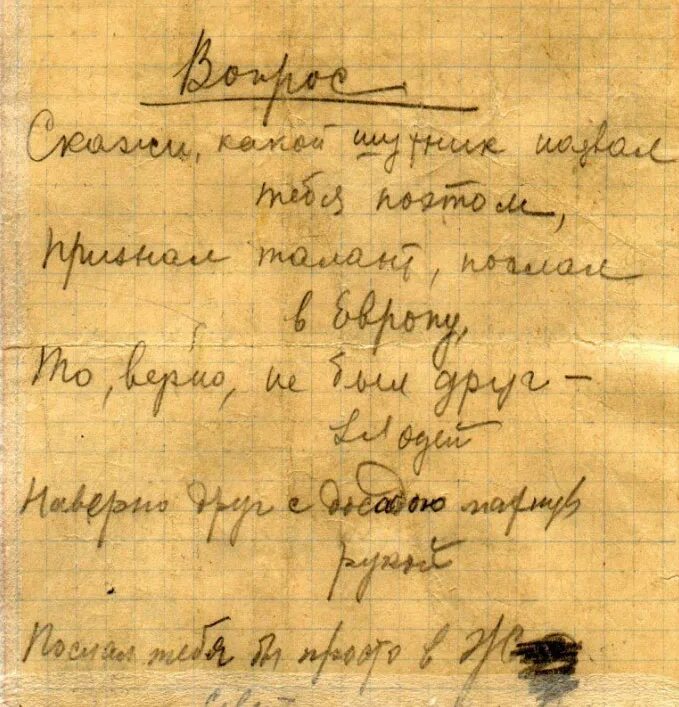 Вопрос
Скажи, какой шутник назвал
тебя поэтом,
Признал талант, послал
в Европу,
То, верно, не был друг –
Людей
Наверно друг с досадою махнув
рукой
Послал тебя бы просто в